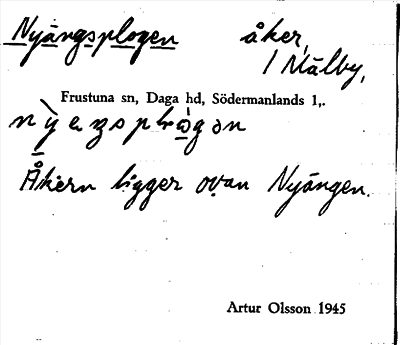 Nyängsplogen åker,
i Mälby,
Frustuna sn, Daga hd, Södermanlands l,.
Åkern ligger ovan Nyängen.
Artur Olsson 1945